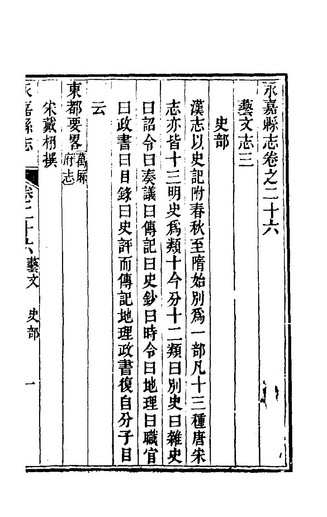 永嘉縣志卷之二十六
藝文志三
史部
漢志以史記附春秋至隋始別爲一部凡十三種唐宋
志亦皆十三明史爲類十今分十二類曰別史曰雜史
曰詔令曰奏議曰傳記曰史鈔曰時令曰地理曰職官
曰政書曰目錄曰史評而傳記地理政書復自分子目
云
東都要畧萬厯府志
宋戴栩撰
永嘉縣志
卷二十六藝文 史部
一